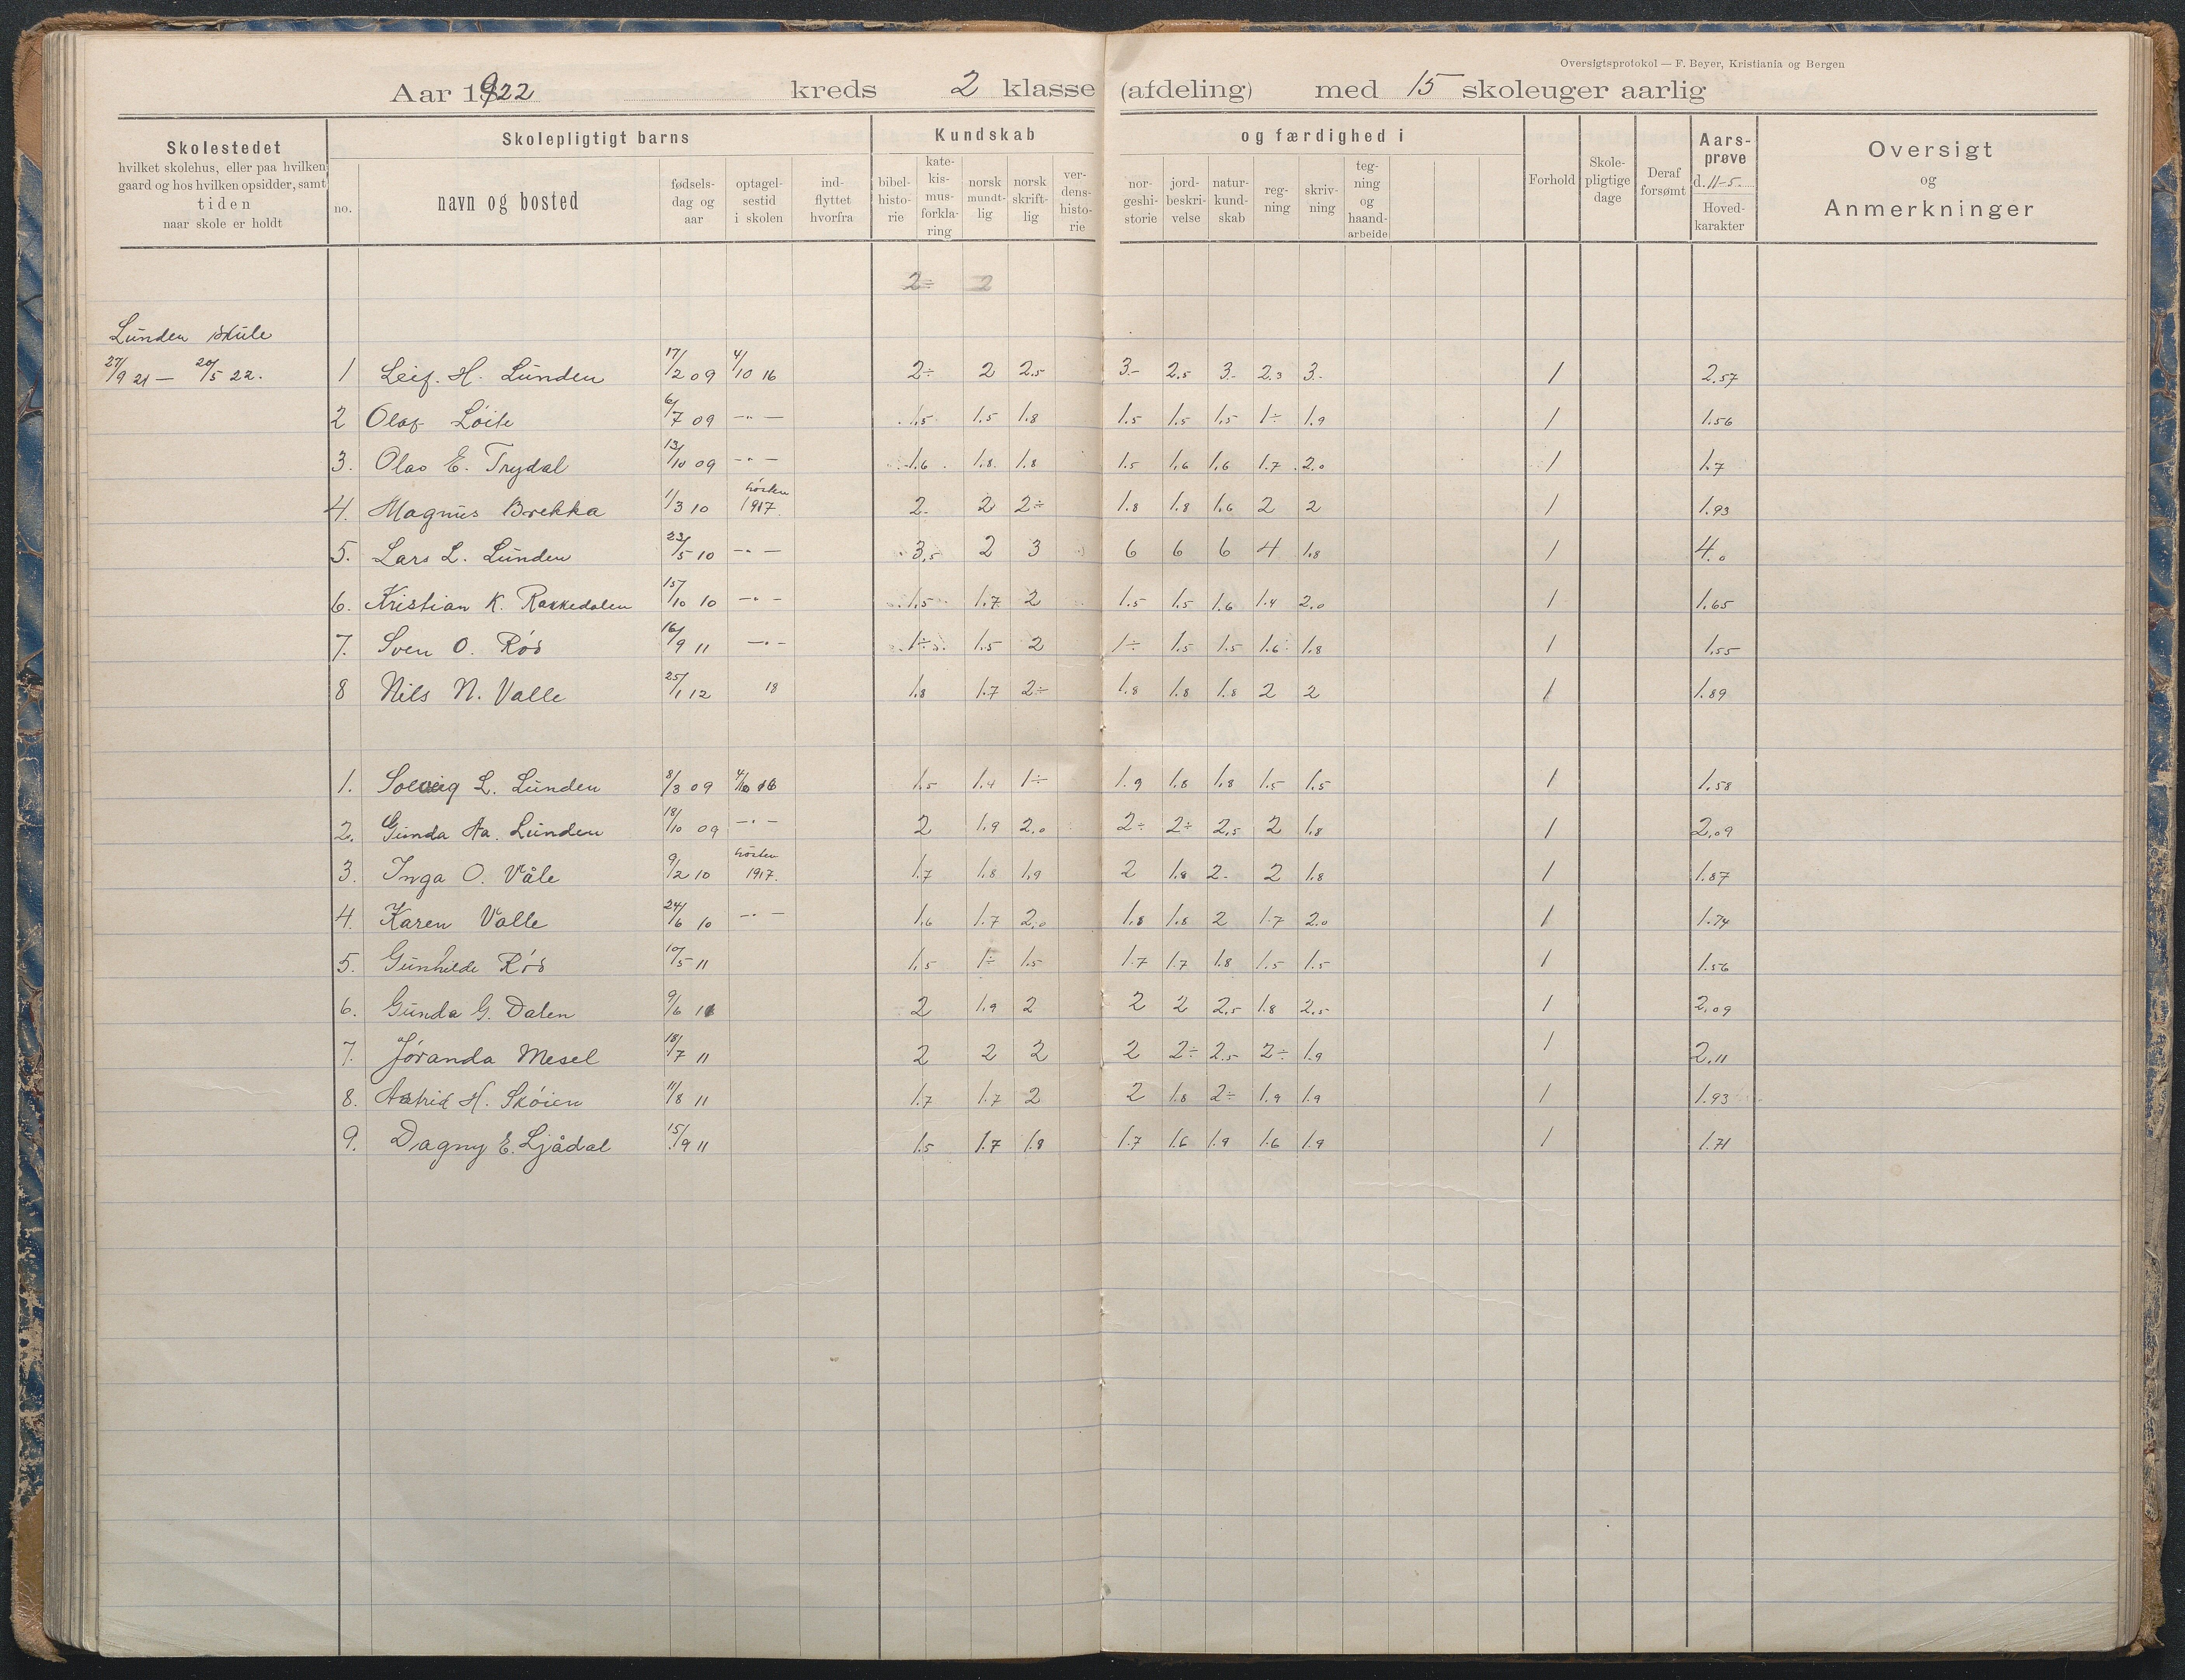 Oversigtsprotokol — F. Beyer, Kristiania og Bergen
Aar 1922 kreds 2 klasse (afdeling) med 15 skoleuger aarlig
Skolestedet
hvilket skolehus, eller paa hvilken
gaard og hos hvilken opsidder, samt
tiden
naar skole er holdt
Skolepligtigt barns
no.
navn og bosted
fødsels-
dag og
aar
optagel-
sestid
i skolen
ind-
flyttet
hvorfra
Kundskab og færdighed i
bibel-
histo-
rie
kate-
kis-
mus-
forkla-
ring
norsk
mundt-
lig
norsk
skrift-
lig
ver-
dens-
histo-
rie
nor-
geshi-
storie
jord-
beskri-
velse
natur-
kund-
skab
reg-
ning
skriv-
ning
teg-
ning
og
haand-
arbeide
Forhold
Skole-
pligtige
dage
Deraf
forsømt
Aars-
prøve
d. 11-5.
Hoved-
karakter
Oversigt
og
Anmerkninger
2÷ 2
Lunden skule
27/9 21 — 20/5 22.
1 Leif. H. Lunden 17/2 09 4/10 16 2÷ 2 2.5 3- 2.5 3- 2.3 3- 1 2.57
2 Olaf Løite 6/7 09 —"— 1.5 1.5 1.8 1.5 1.5 1.5 1÷ 1.9 1 1.56
3. Olav E. Trydal 13/10 09 —"— 1.6 1.8 1.8 1.5 1.6 1.6 1.7 2.0 1 1.7
4. Magnus Brekka 1/3 10 hösten 1917. 2- 2 2÷ 1.8 1.8 1.6 2 2 1 1.93
5. Lars L. Lunden 23/5 10 —"— 3.5 2 3 6 6 6 4 1.8 1 4.0
6. Kristian K. Rakkedalen 15/10 10 —"— 1.5 1.7 2 1.5 1.5 1.6 1.4 2.0 1 1.65
7. Sven O. Rös 16/9 11 —"— 1÷ 1.5 2 1÷ 1.5 1.5 1.6 1.8 1 1.55
8 Nils N. Valle 25/1 12 18 1.8 1.7 2÷ 1.8 1.8 1.8 2 2 1 1.89
1. Solveig L. Lunden 8/3 09 4/10 16 1.5 1.4 1÷ 1.9 1.8 1.8 1.5 1.5 1 1.58
2. Gunda Aa. Lunden 18/10 09 —"— 2 1.9 2.0 2÷ 2÷ 2.5 2 1.8 1 2.09
3. Inga O. Våle 9/2 10 hösten 1917. 1.7 1.8 1.9 2 1.8 2- 2 1.8 1 1.87
4. Karen Valle 24/6 10 —"— 1.6 1.7 2.0 1.8 1.8 2 1.7 2.0 1 1.74
5. Gunhilde Rös 10/5 11 1.5 1÷ 1.5 1.7 1.7 1.8 1.5 1.5 1 1.56
6. Gunda G. Dalen 9/6 11 2 1.9 2 2 2 2.5 1.8 2.5 1 2.09
7. Jöranda Mesel 18/7 11 2 2 2 2 2÷ 2.5 2÷ 1.9 1 2.11
8. Astrid H. Sköien 11/8 11 1.7 1.7 2 2 1.8 2÷ 1.9 1.9 1 1.93
9. Dagny E. Ljådal 15/9 11 1.5 1.7 1.8 1.7 1.6 1.9 1.6 1.9 1 1.71